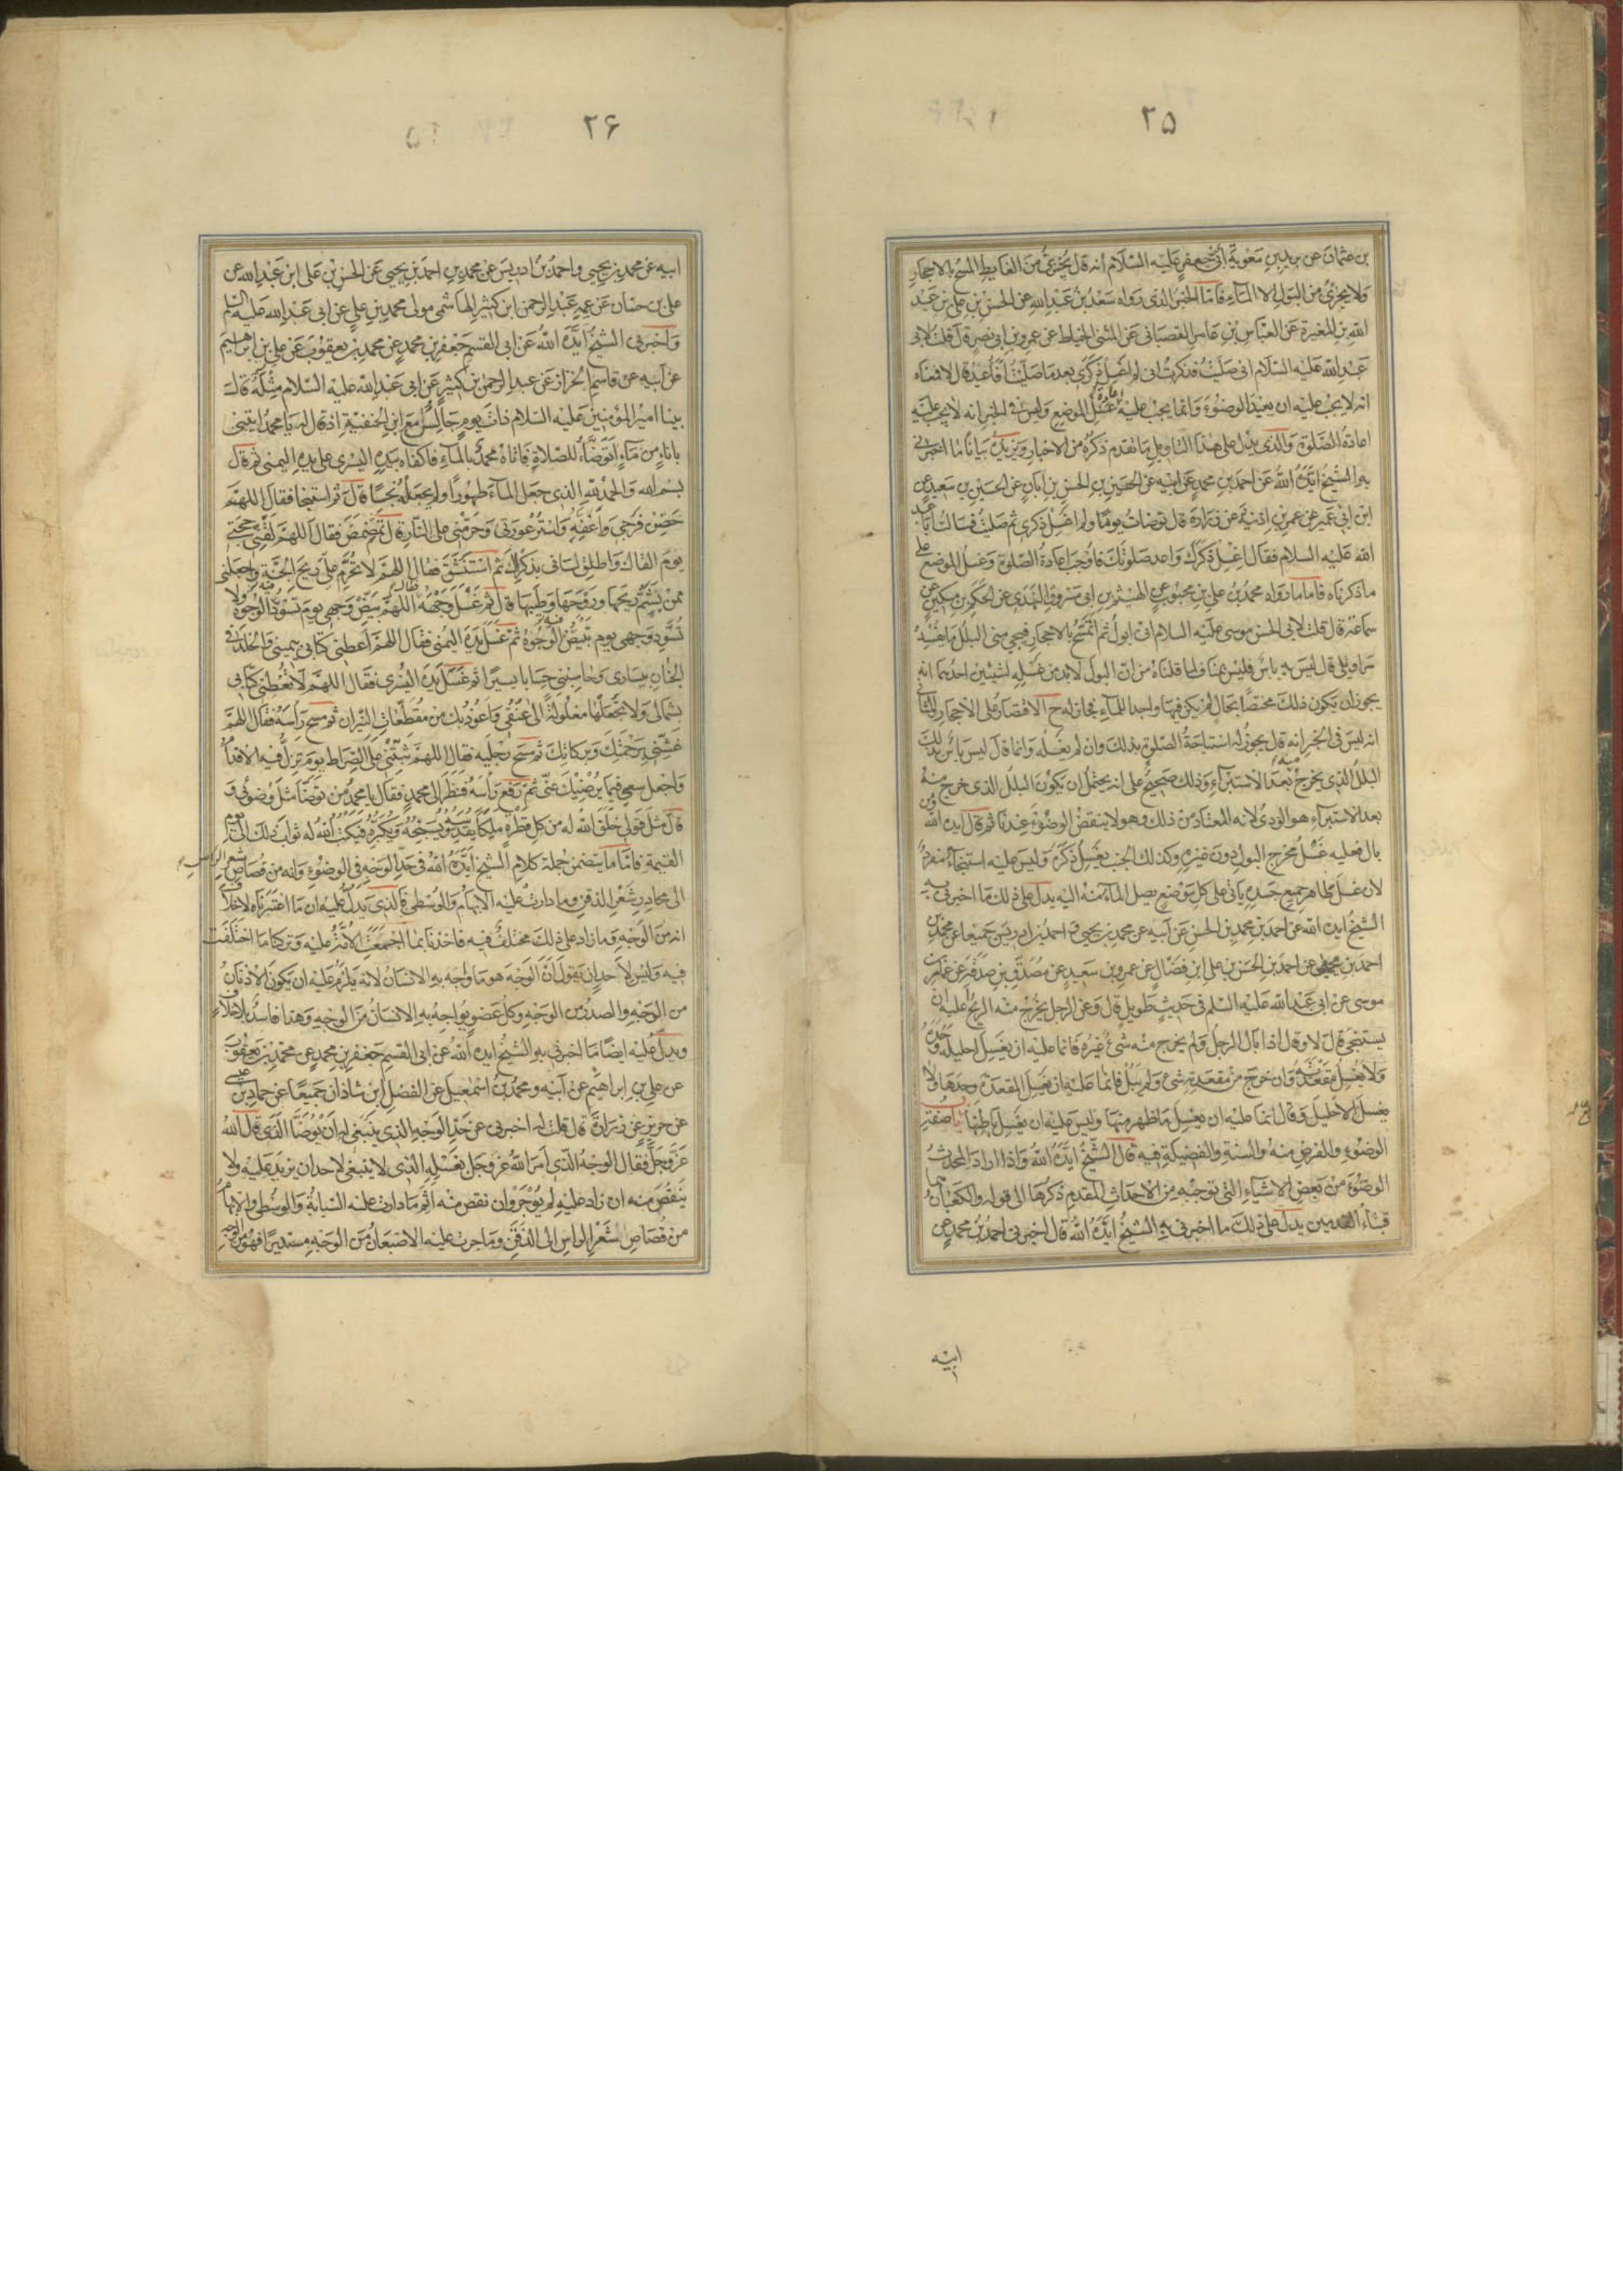 ۲۵
بن عثمان عن بريد بن معوية عن ابي جعفر عليه السلام انه قال يجزئ من الغايط المسح بالاحجار
ولا يجزئ من البول الا الماء فاما الخبر الذى رواه سعد بن عبد الله عن الحسن بن على بن عبد
الله بن المغيرة عن العباس بن عامر القصبانى عن المثنى الحناط عن عمرو بن ابى نصر قال قلت لابى
عبد الله عليه السلام انى صليت فذكرت انى لم اغسل ذكرى بعد ما صليت أفأعيد قال لا فمعناه
انه لا يجب عليه ان يعيد الوضوء وانما يجب عليه غسل الموضع وليس فى الخبر انه لا يجب عليه
اعادة الصلوة والذى يدل على هذا التاويل ما تقدم ذكره من الاخبار ويزيده بيانا ما اخبرنى
به الشيخ ايده الله عن احمد بن محمد عن ابيه عن الحسين بن الحسن بن ابان عن الحسين بن سعيد عن
ابن ابى عمير عن عمر بن اذينة عن زرارة قال توضات يوما ولم اغسل ذكرى ثم صليت فسالت ابا عبد
الله عليه السلام فقال اغسل ذكرك واعد صلوتك فاوجب اعادة الصلوة وغسل الموضع على
ما ذكرناه فاما ما رواه محمد بن على بن محبوب عن الهيثم بن ابى مسروق النهدى عن الحكم بن مسكين عن
سماعة قال قلت لابى الحسن موسى عليه السلام انى ابول ثم اتمسح بالاحجار فيجى منى البلل ما يفسد
سراويلى قال ليس به باس فليس بمناف لما قلناه من ان البول لابد من غسله لشيئين احدهما انه
يجوز ان يكون ذلك مختصا بحال لم يكن فيها واجدا للماء فجاز له ح الاقتصار على الاحجار والثانى
انه ليس فى الخبر انه قال يجوز له استباحة الصلوة بذلك وان لم يغسله وانما قال ليس باس بذلك
البلل الذى يخرج منه بعد الاستبراء وذلك صحيح على انه يحتمل ان يكون البلل الذى خرج منه
بعد الاستبراء هو الودى لانه المعتاد من ذلك وهو لا ينقض الوضوء عندنا ثم قال ايده الله ومن
بال فعليه غسل مخرج البول دون غيره وكذلك الجنب يغسل ذكره وليس عليه استنجاء مفرد
لان غسل ظاهر جميع جسده ياتى على كل موضع يصل الماء منه اليه يدل على ذلك ما اخبرنى به
الشيخ ايده الله عن احمد بن محمد بن الحسن عن ابيه عن محمد بن يحيى و احمد بن ادريس جميعا عن محمد بن
احمد بن يحيى عن احمد بن الحسن بن على ابن فضال عن عمرو بن سعيد عن مصدق بن صدقة عن عمار بن
موسى عن ابى عبد الله عليه السلم فى حديث طويل قال وعن الرجل يخرج منه الريح أعليه ان
يستنجى قال لا وقال اذا بال الرجل ولم يخرج منه شىء غيره فانما عليه ان يغسل احليله وحده
ولا يغسل مقعدته وان خرج من مقعدته شىء ولم يبل فانما عليه ان يغسل المقعدة وحدها ولا
يغسل الاحليل وقال انما عليه ان يغسل ما ظهر منها وليس عليه ان يغسل باطنها باب صفة
الوضوء والفرض منه والسنة والفضيلة فيه قال الشيخ ايده الله واذا اراد المحدث
الوضوء من بعض الاشياء التى توجبه من الاحداث المقدم ذكرها الى قوله والكعبان هما
قبتا القدمين يدل على ذلك ما اخبرنى به الشيخ ايده الله قال اخبرنى احمد بن محمد عن
ابيه
۲۶
ابيه عن محمد بن يحيى واحمد بن ادريس عن محمد بن احمد بن يحيى عن الحسن بن على ابن عبد الله عن
على بن حسان عن عمه عبد الرحمن ابن كثير الهاشمى مولى محمد بن على عن ابى عبد الله عليه السلم
واخبرنى الشيخ ايده الله عن ابى القسم جعفر بن محمد عن محمد بن يعقوب عن على بن ابرهيم
عن ابيه عن قاسم الخزاز عن عبد الرحمن بن كثير عن ابى عبد الله عليه السلام مثله قال
بينا امير المؤمنين عليه السلام ذات يوم جالس مع ابن الحنفية اذ قال له يا محمد ايتنى
باناء من ماء اتوضاء للصلاة فاتاه محمد بالماء فاكفاه بيده اليسرى على يده اليمنى ثم قال
بسم الله والحمد لله الذى جعل الماء طهورا ولم يجعله نجسا قال ثم استنجا فقال اللهم
حصن فرجى واعفه واستر عورتى وحرمنى على النار قال ثم تمضمض فقال اللهم لقنى حجتى
يوم القاك واطلق لسانى بذكراك ثم استنشق فقال اللهم لا تحرم على ريح الجنة واجعلنى
ممن يشم ريحها وروحها وطيبها قال ثم غسل وجهه فقال اللهم بيض وجهى يوم تسود فيه الوجوه ولا
تسود وجهى يوم تبيض فيه الوجوه ثم غسل يده اليمنى فقال اللهم أعطنى كتابى بيمينى والخلد فى
الجنان بيسارى وحاسبنى حسابا يسيرا ثم غسل يده اليسرى فقال اللهم لا تعطنى كتابى
بشمالى ولا تجعلها مغلولة الى عنقى واعوذ بك من مقطعات النيران ثم مسح رأسه فقال اللهم
غشنى برحمتك وبركاتك ثم مسح رجليه فقال اللهم ثبتنى على الصراط يوم تزل فيه الاقدام
واجعل سعيى فيما يرضيك عنى ثم رفع رأسه فنظر الى محمد فقال يا محمد من توضا مثل وضوئى و
قال مثل قولى خلق الله له من كل قطرة ملكا يقدسه ويسبحه ويكبره فيكتب الله له ثواب ذلك الى يوم
القيمة فاما ما يتضمن جملة كلام الشيخ ايده الله فى حد الوجه فى الوضوء وانه من قصاص شعر الراس
الى محادر شعر الذقن وما دارت عليه الابهام والوسطى فالذى يدل عليه ان ما اعتبرناه لا خلاف
انه من الوجه وما زاد على ذلك مختلف فيه فاخذنا بما اجمعت الامة عليه وتركنا ما اختلفت
فيه وليس لاحد ان يقول ان الوجه هو ما واجه به الانسان لانه يلزم عليه ان يكون الاذنان
من الوجه والصدر من الوجه وكل عضو يواجه به الانسان من الوجه وهذا فاسد بلا خلاف
ويدل عليه ايضا ما اخبرنى به الشيخ ايده الله عن ابى القسم جعفر بن محمد عن محمد بن يعقوب
عن على بن ابراهيم عن ابيه ومحمد بن اسمعيل عن الفضل ابن شاذان جميعا عن حماد بن عيسى
عن حريز عن زرارة قال قلت له اخبرنى عن حد الوجه الذى ينبغى له ان يوضا الذى قال الله
عز وجل فقال الوجه الذى امر الله عز وجل بغسله الذى لا ينبغى لاحد ان يزيد عليه ولا
ينقص منه ان زاد عليه لم يؤجر وان نقص منه اثم ما دارت عليه السبابة والوسطى والابهام
من قصاص شعر الراس الى الذقن وما جرت عليه الاصبعان من الوجه مستديرا فهو من الوجه